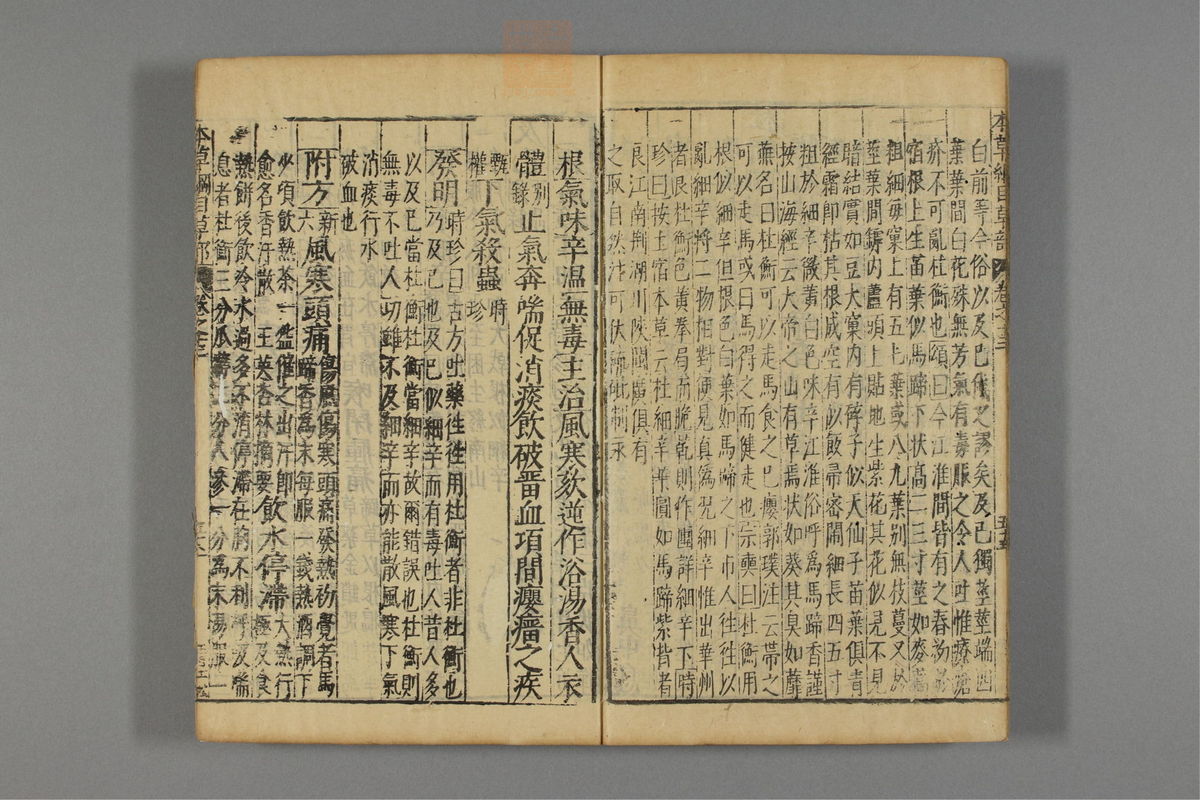 本草綱目草部 卷之十三
白前等今俗以及已代之謬矣及已獨莖莖端四
葉葉間白花殊無芳氣有毒服之令人吐惟療瘡
疥不可亂杜衡也頌曰今江淮間皆有之春初於
宿根上生苗葉似馬蹄下狀高二三寸莖如麥藁
粗細每窠上有五七葉或八九葉别無枝蔓又於
莖葉間罅内蘆頭上貼地生紫花其花似見不見
暗結實如豆大窠内有碎子似天仙子苗葉俱青
經霜即枯其根成空有似飯帚密閙細長四五寸
粗於細辛微黄白色味辛江淮俗呼爲馬蹄香謹
按山海經云天帝之山有草焉状如葵其臭如蘼
蕪名曰杜衡可以走馬食之已癭郭璞注云帶之
可以走馬或曰馬得之而健走也宗奭曰杜衡用
根似細辛但根色白葉如馬蹄之下市人往往以
亂細辛將二物相對便見真僞况細辛惟出華州
者良杜衡色黄拳局而脆乾則作團詳細辛下時
珍曰按土宿本草云杜細辛葉圓如馬蹄紫背者
良江南荆湖川陜閩廣俱有
之取自然汁可伏硫砒制汞
根氣味辛温無毒主治風寒欬逆作浴湯香人衣
體别錄止氣奔喘促消痰飲破畱血項間癭瘤之疾
甄權下氣殺蟲時珍
發明時珍曰古方吐藥往往用杜衡者非杜衡也
乃及已也及已似細辛而有毒吐人昔人多
以及已當杜衡杜衡當細辛故爾錯誤也杜衡則
無毒不吐人功雖不及細辛而亦能散風寒下氣
消痰行水
破血也
附方新六風寒頭痛傷風傷寒頭痛發熱初覺者馬
蹄香爲末每服一錢熱酒調下
少頃飲熱茶一盌催之出汗即
愈名香汗散 王英杏林摘要飲水停滯大熱行極及食
熱餅後飲冷水過多不消停滯在胸不利呼吸喘
息者杜衡三分瓜蒂二分人參一分爲末湯服一
本草綱目草部 卷之十三